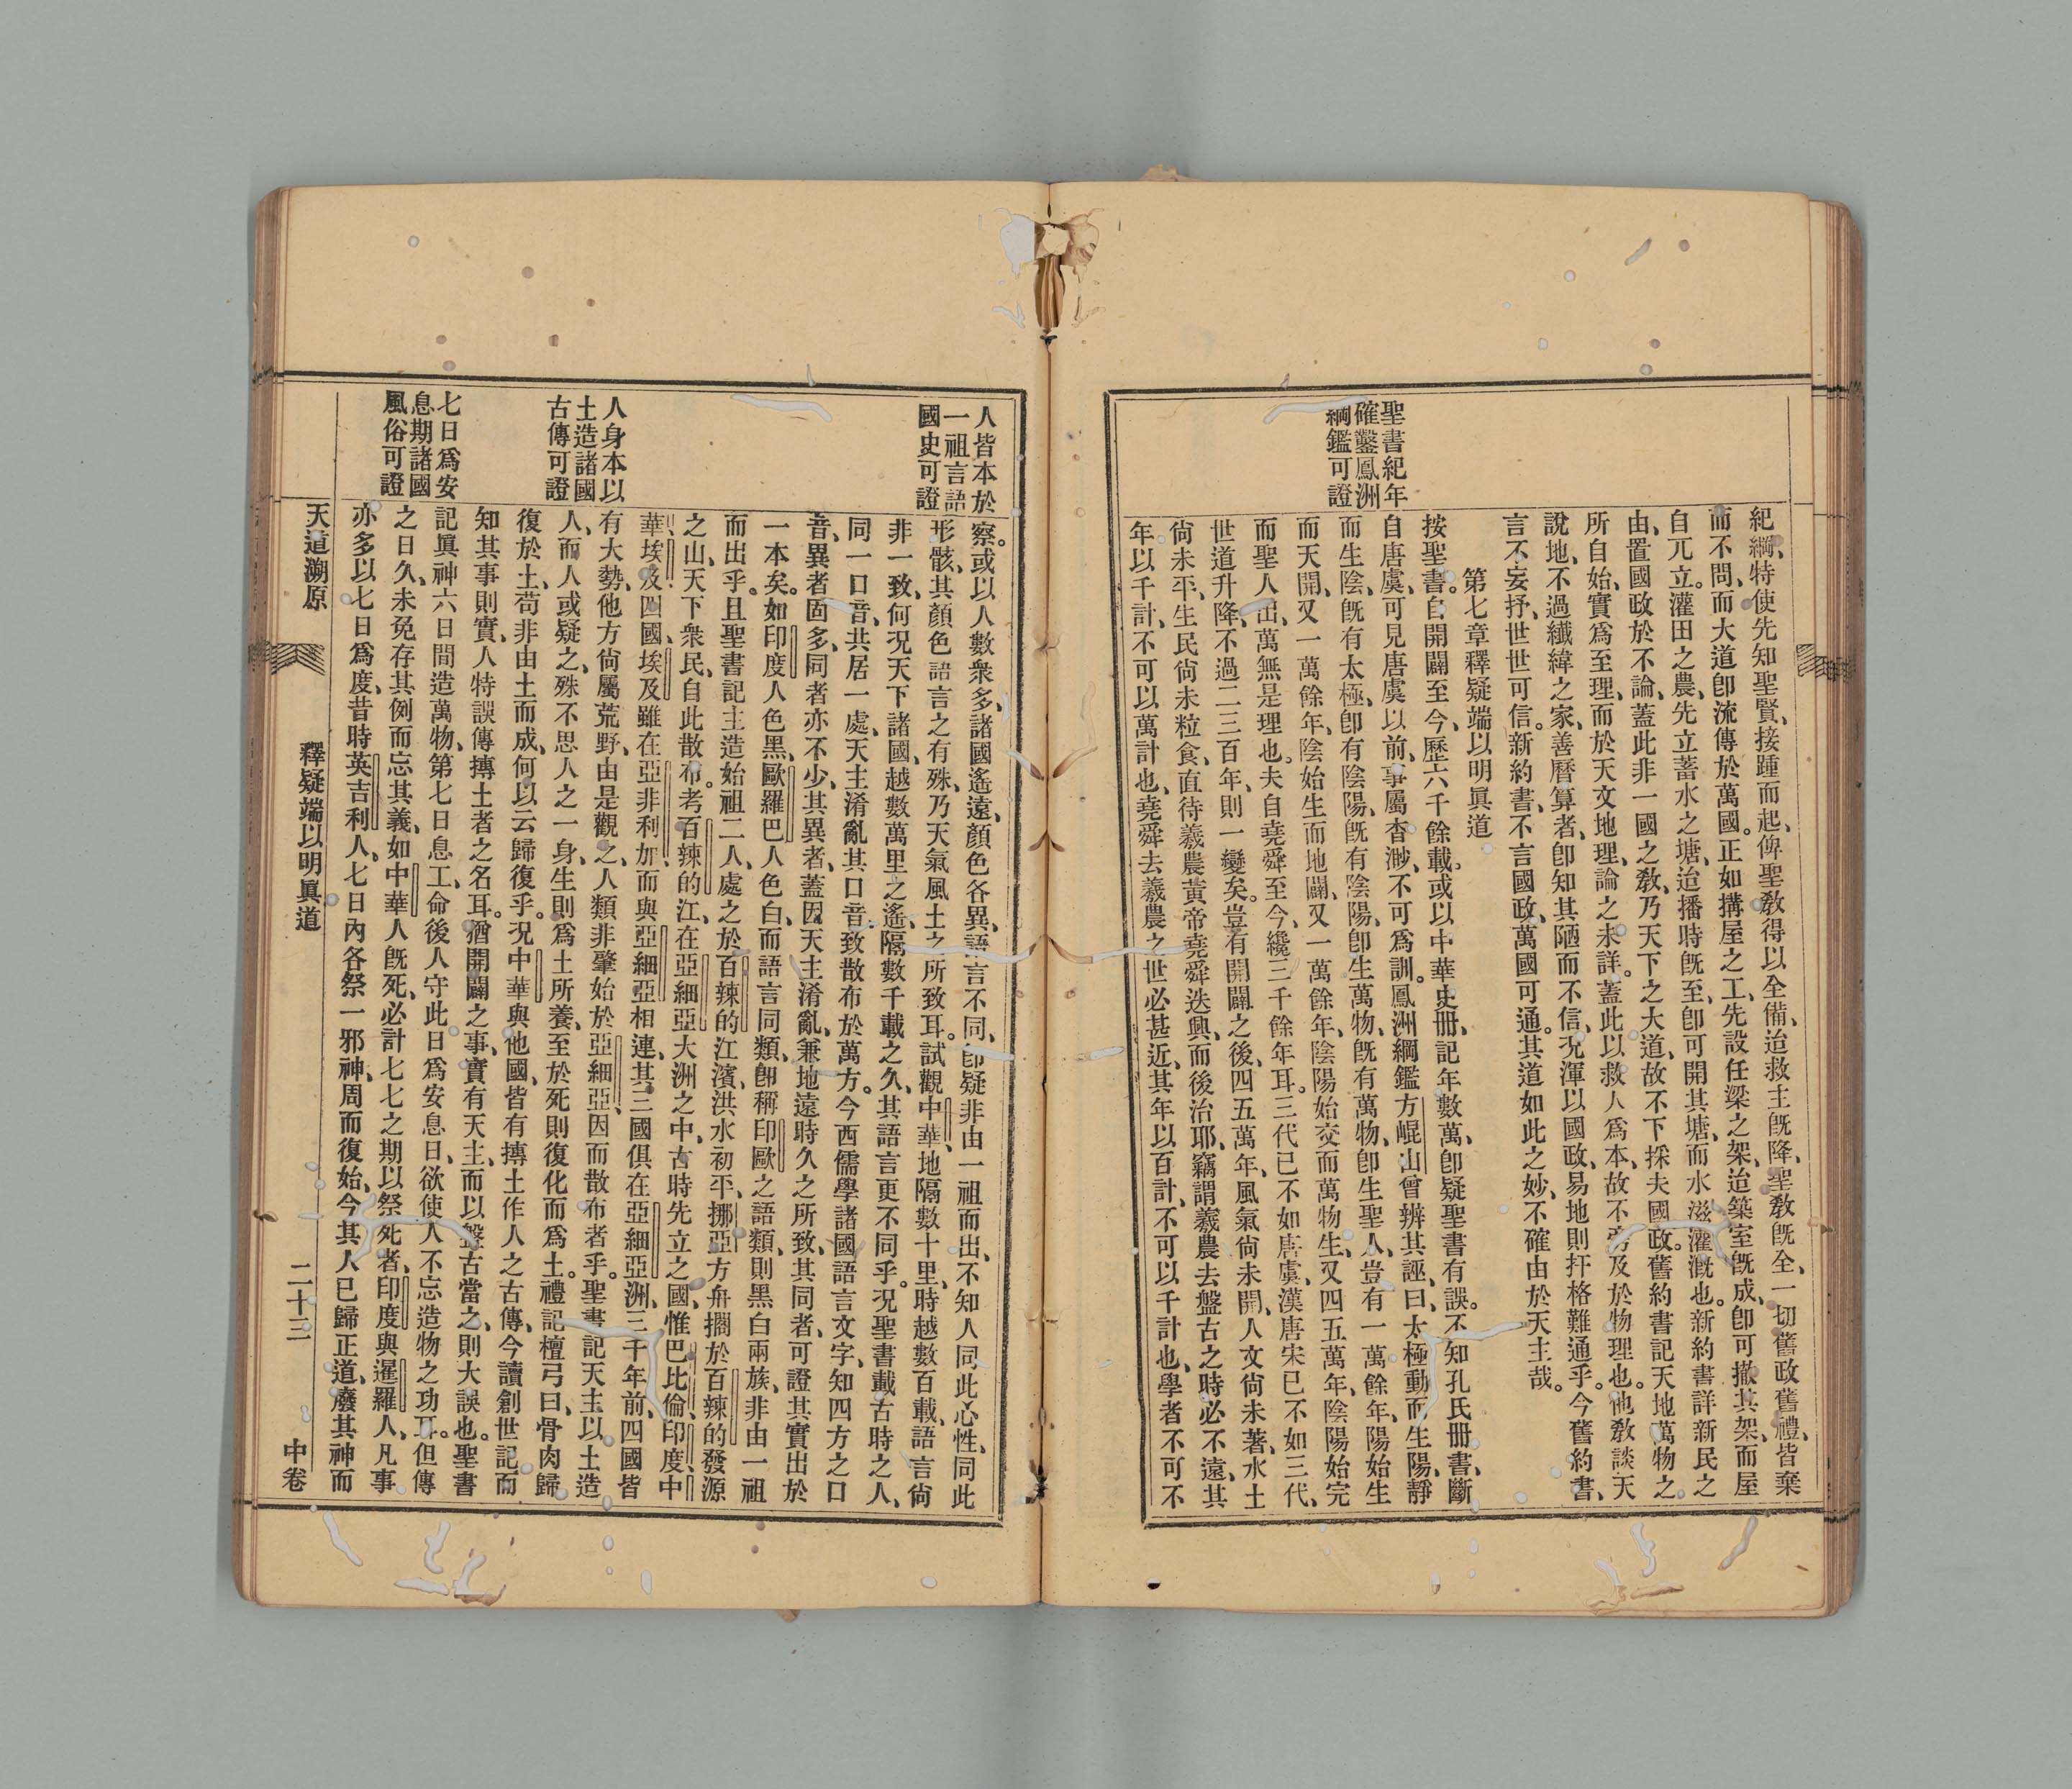 紀綱、特使先知聖賢、接踵而起、俾聖敎得以全備、迨救主旣降、聖敎旣全、一切舊政舊禮、皆棄
而不問、而大道卽流傳於萬國。正如搆屋之工、先設任梁之架、迨築室旣成、卽可撤其架而屋
自兀立。灌田之農、先立蓄水之塘、迨播時旣至、卽可開其塘、而水滋灌漑也。新約書詳新民之
由、置國政於不論、蓋此非一國之敎、乃天下之大道、故不下採夫國政。舊約書記天地萬物之
所自始、實爲至理、而於天文地理、論之未詳。蓋此以救人爲本、故不旁及於物理也。他敎談天
說地、不過纖緯之家、善曆算者、卽知其陋而不信、況渾以國政、易地則扞格難通乎。今舊約書、
言不妄抒、世世可信。新約書、不言國政、萬國可通。其道如此之妙、不確由於天主哉。
第七章釋疑端以明眞道
聖書紀年
確鑿鳳洲
綱鑑可證
按聖書。自開闢至今、歷六千餘載。或以中華史册、記年數萬、卽疑聖書有誤。不知孔氏册書、斷
自唐虞、可見唐虞以前、事屬杳渺、不可爲訓。鳳洲綱鑑方崐山曾辨其誣、曰、太極動而生陽、靜
而生陰、旣有太極、卽有陰陽、旣有陰陽、卽生萬物、旣有萬物、卽生聖人、豈有一萬餘年、陽始生
而天開、又一萬餘年、陰始生而地闢、又一萬餘年、陰陽始交而萬物生、又四五萬年、陰陽始完
而聖人出、萬無是理也。夫自堯舜至今、纔三千餘年耳。三代已不如唐虞、漢唐宋已不如三代、
世道升降、不過二三百年、則一變矣。豈有開闢之後、四五萬年、風氣尙未開、人文尙未著、水土
尙未平、生民尙未粒食、直待羲農黃帝堯舜迭興、而後治耶、竊謂羲農去盤古之時必不遠、其
年以千計、不可以萬計也、堯舜去羲農之世必甚近、其年以百計、不可以千計也、學者不可不
人皆本於
一祖言語
國史可證
察。或以人數衆多、諸國遙遠、顏色各異、語言不同、卽疑非由一祖而出、不知人同此心性、同此
形骸、其顏色語言之有殊、乃天氣風土之所致耳。試觀中華、地隔數十里、時越數百載、語言尙
非一致、何況天下諸國、越數萬里之遙、隔數千載之久、其語言更不同乎。況聖書載古時之人、
同一口音、共居一處、天主淆亂其口音、致散布於萬方。今西儒學諸國語言文字、知四方之口
音、異者固多、同者亦不少、其異者、蓋因天主淆亂、兼地遠時久之所致、其同者、可證其實出於
一本矣。如印度人色黑、歐羅巴人色白、而語言同類、卽稱印歐之語類、則黑白兩族、非由一祖
而出乎。且聖書記主造始祖二人、處之於百辣的江濱、洪水初平、挪亞方舟擱於百辣的發源
之山、天下衆民、自此散布。考百辣的江、在亞細亞大洲之中、古時先立之國、惟巴比倫、印度、中
華、埃及四國、埃及雖在亞非利加、而與亞細亞相連、其三國俱在亞細亞洲、三千年前、四國皆
有大勢、他方尙屬荒野、由是觀之、人類非肇始於亞細亞、因而散布者乎。聖書記天主以土造
人身本以
土造諸國
古傳可證
人、而人或疑之、殊不思人之一身、生則爲土所養、至於死則復化而爲土。禮記檀弓曰、骨肉歸
復於土、苟非由土而成、何以云歸復乎。況中華與他國、皆有摶土作人之古傳、今讀創世記而
知其事則實、人特誤傳摶土者之名耳、猶開闢之事、實有天主、而以盤古當之、則大誤也。聖書
七日爲安
息期諸國
風俗可證
記眞神六日間造萬物、第七日息工、命後人守此日爲安息日、欲使人不忘造物之功耳。但傳
之日久、未免存其例而忘其義、如中華人旣死、必計七七之期以祭死者、印度與暹羅人、凡事
亦多以七日爲度、昔時英吉利人、七日內各祭一邪神、周而復始、今其人已歸正道、廢其神而
天道溯原　釋疑端以明眞道　二十三　中卷